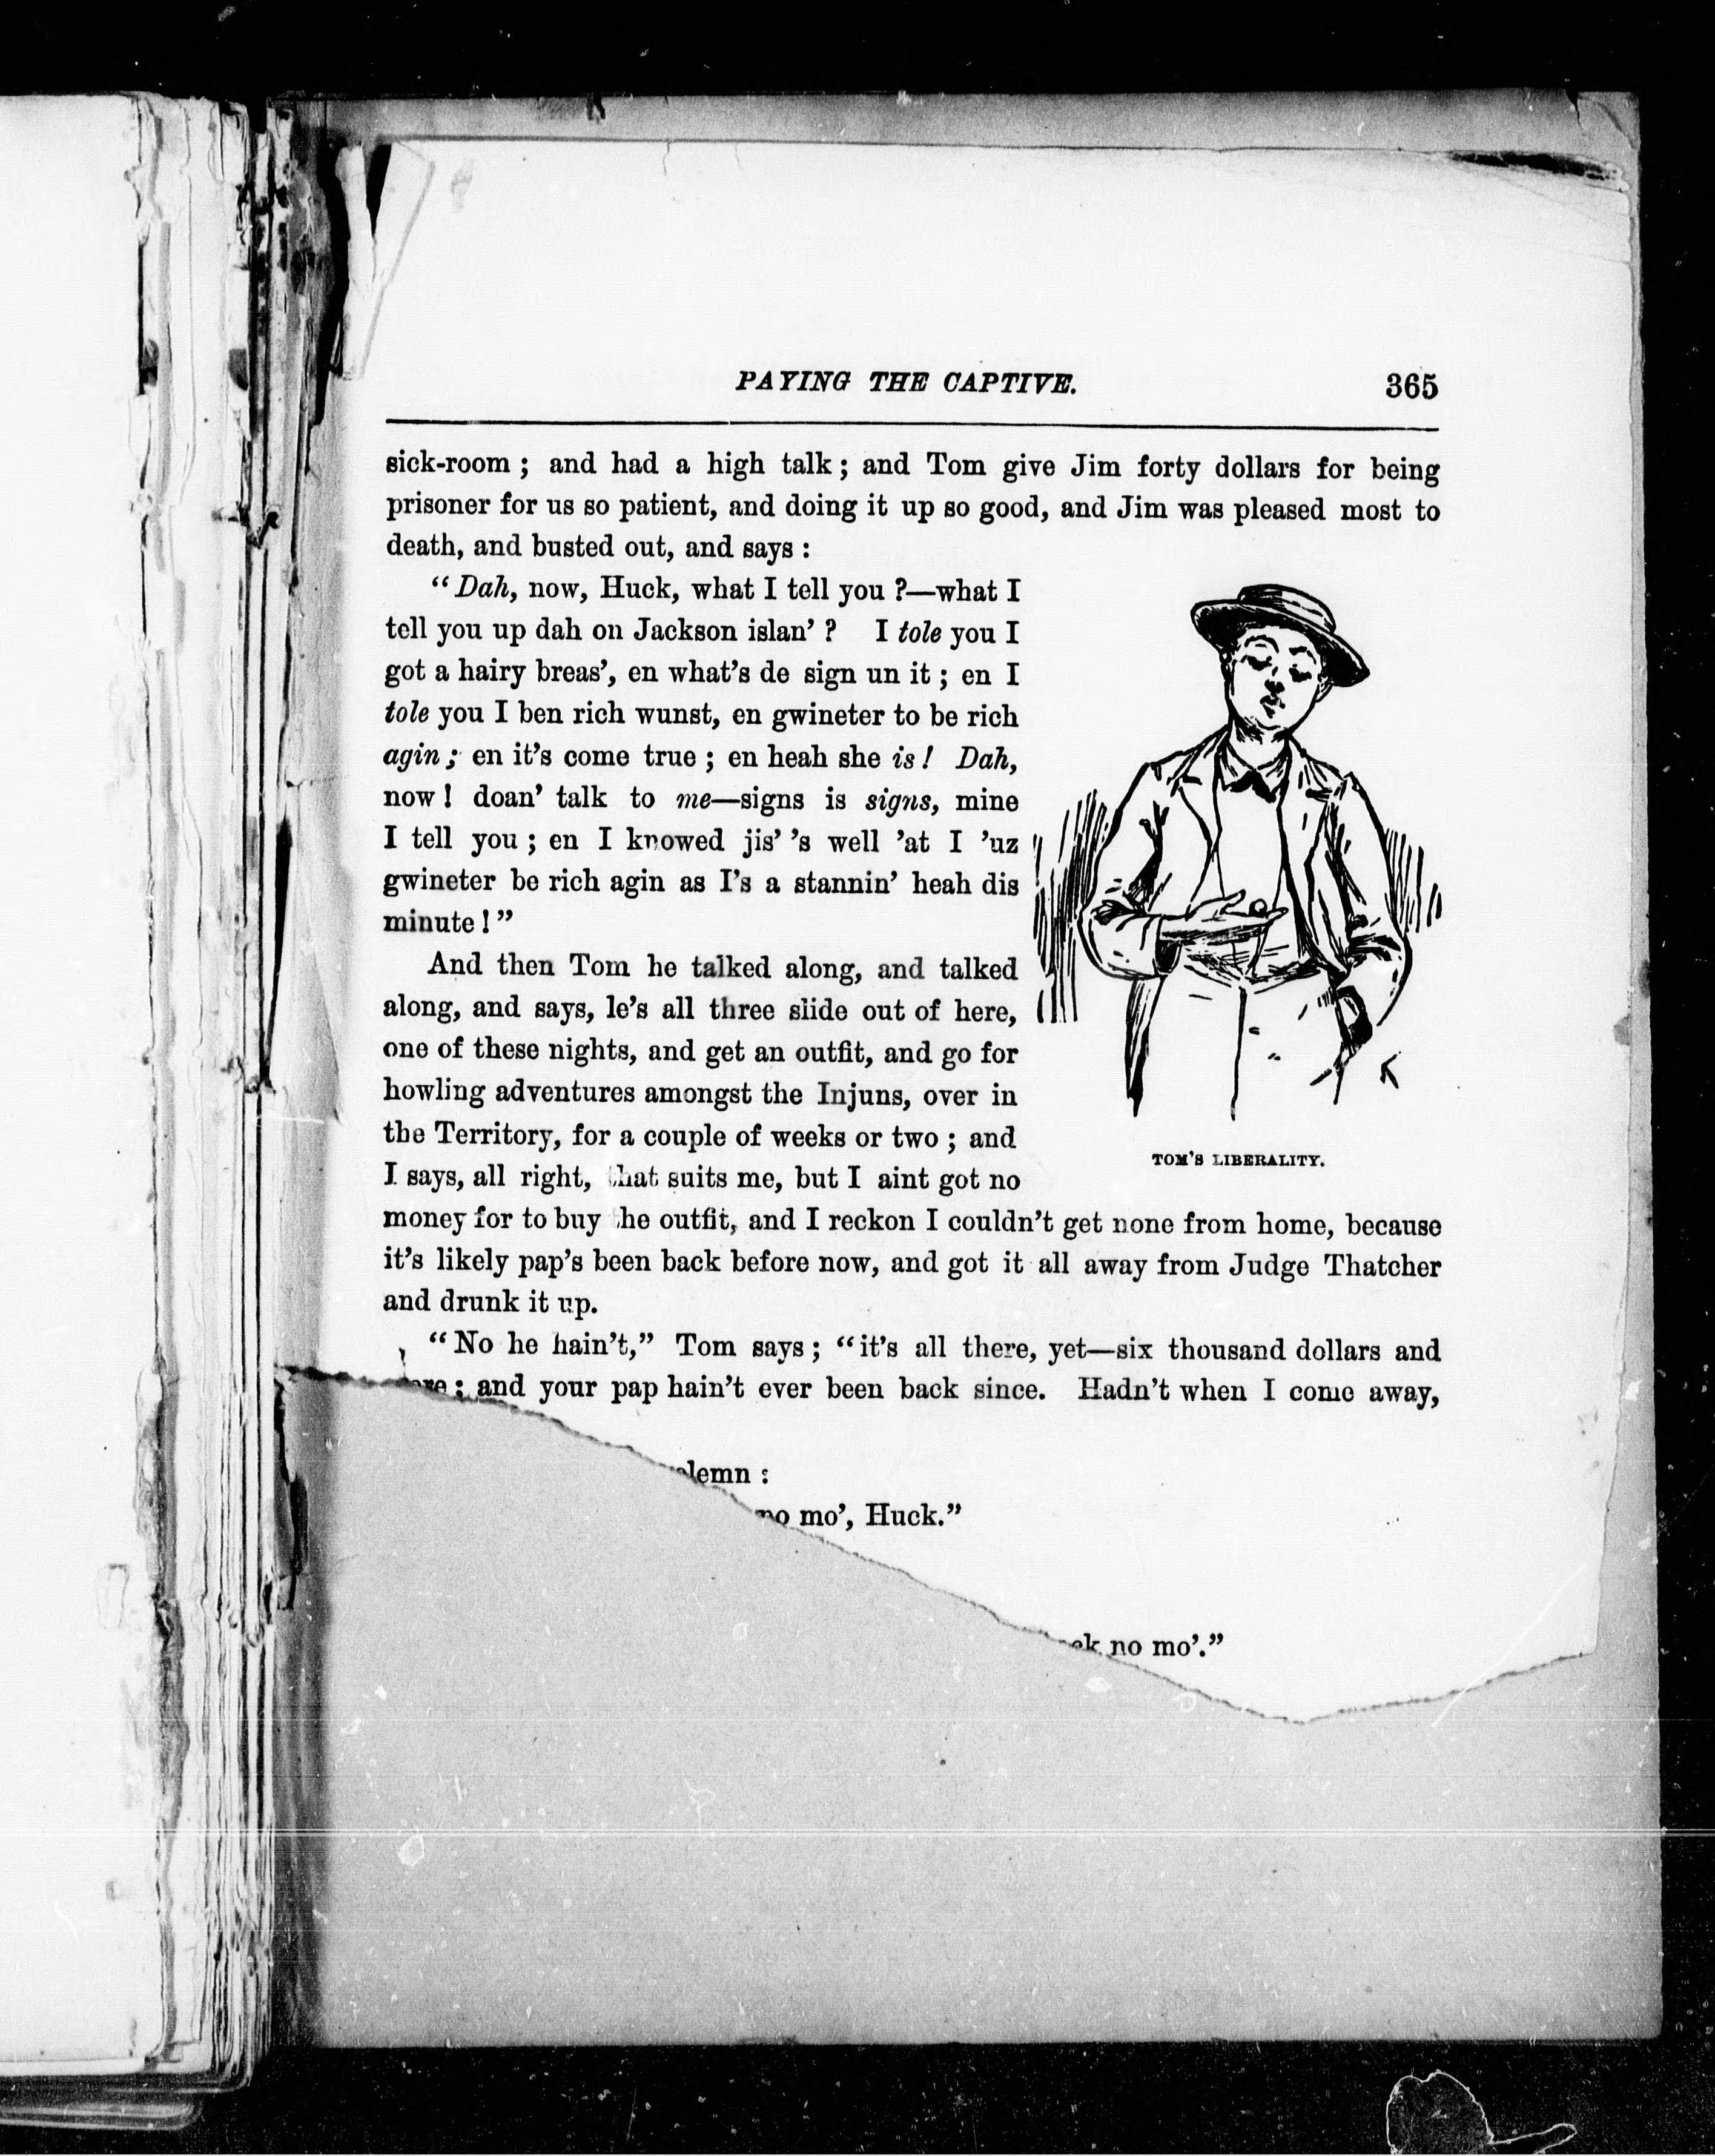 PAYING THE CAPTIVE. 365
sick-room ; and had a high talk ; and Tom give Jim forty dollars for being
prisoner for us so patient, and doing it up so good, and Jim was pleased most to
death, and busted out, and says :
“ Dah, now, Huck, what I tell you ?—what I
tell you up dah on Jackson islan’ ? I tole you I
got a hairy breas’, en what’s de sign un it ; en I
tole you I ben rich wunst, en gwineter to be rich
agin ; en it’s come true ; en heah she is ! Dah,
now ! doan’ talk to me—signs is signs, mine
I tell you ; en I knowed jis’ ’s well ’at I ’uz
gwineter be rich agin as I’s a stannin’ heah dis
minute ! ”
And then Tom he talked along, and talked
along, and says, le’s all three slide out of here,
one of these nights, and get an outfit, and go for
howling adventures amongst the Injuns, over in
the Territory, for a couple of weeks or two ; and
I says, all right, that suits me, but I aint got no
money for to buy the outfit, and I reckon I couldn’t get none from home, because
it’s likely pap’s been back before now, and got it all away from Judge Thatcher
and drunk it up.
“ No he hain’t,” Tom says ; “ it’s all there, yet—six thousand dollars and
; and your pap hain’t ever been back since. Hadn’t when I come away,
:
no mo’, Huck.”
no mo’.”
TOM’S LIBERALITY.